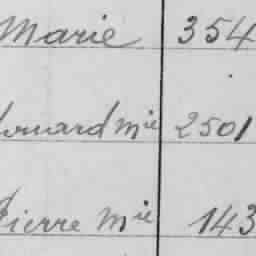 Marie 354
douard Mie 2501
Pierre Mie 143